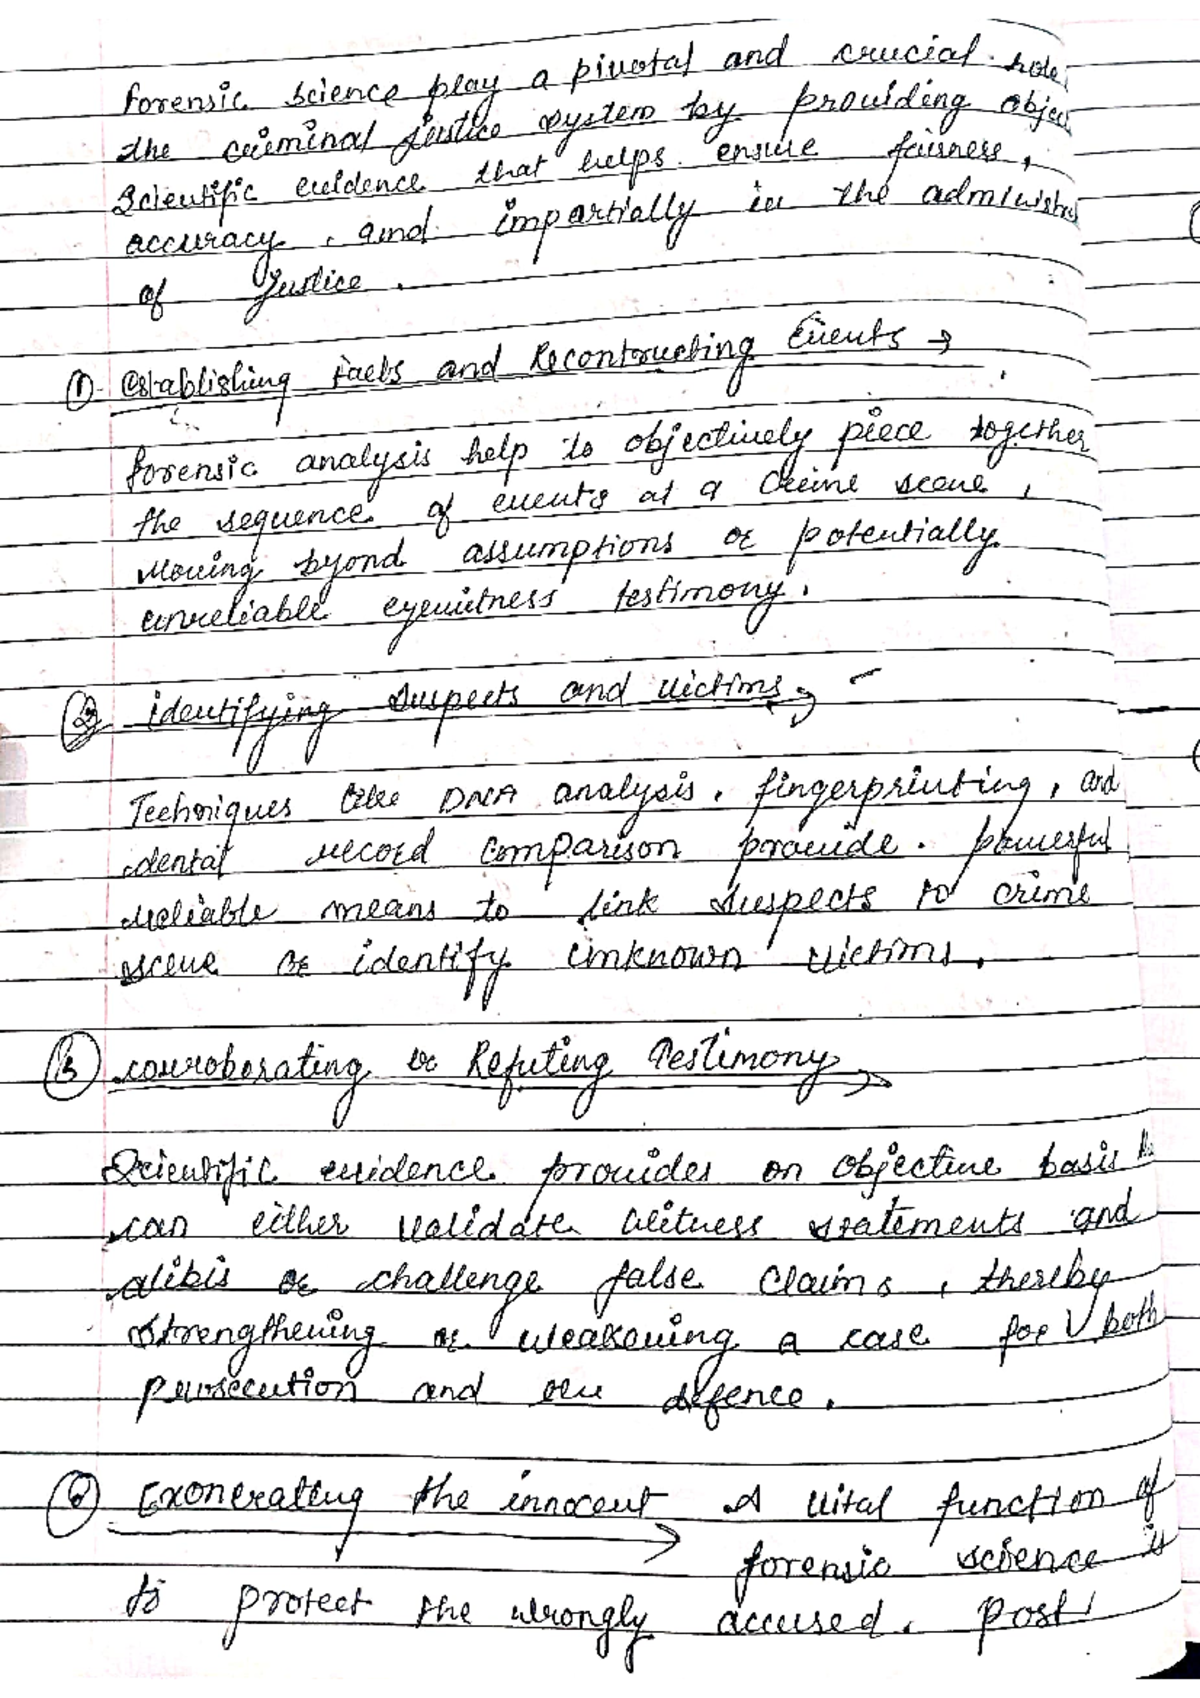 Forensic science play a pivotal and crucial role
the criminal justice system by providing objec
Scientific evidence that helps ensure fairness,
accuracy, and impartially in the administra
of Justice.
① Establishing Facts and Recontructing Events →
forensic analysis help to objectively piece together
the sequence of events at a crime scene,
Moving byond assumptions or potentially
unreliable eyewitness testimony.
② identifying suspects and victims →
Techniques like DNA analysis, fingerprinting, and
dental record comparison provide. powerful
reliable means to link suspects to crime
scene or identify unknown victims.
③ corroborating or Refuting Testimony →
Scientific evidence provides an objective basis
can either validate witness statements and
alibis or challenge false claims, thereby
strengthening or weakening a case for both
persecution and defence.
④ Exonerating the innocent → A vital function of
forensic science is
to protect the wrongly accused. Post